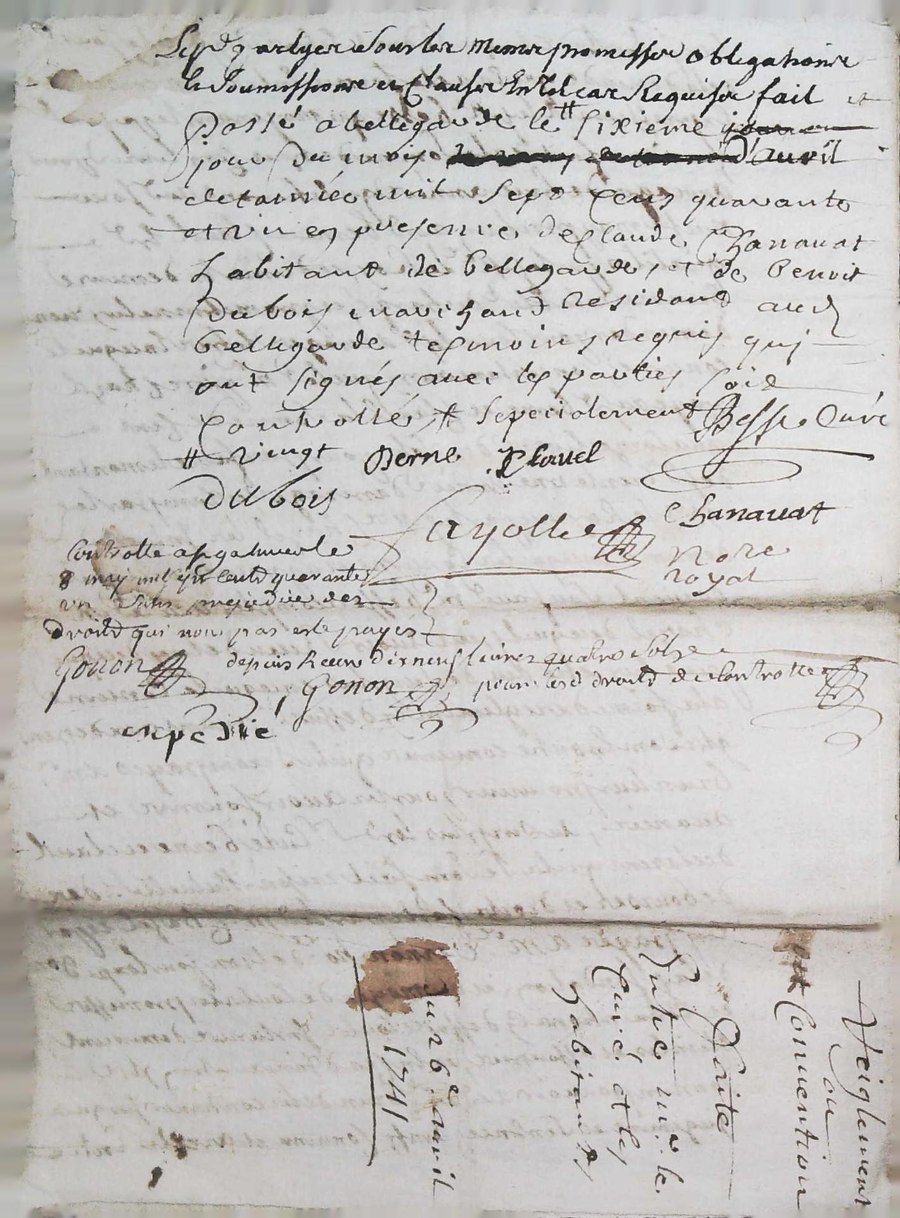 Lesd parties sous les memes promesses obligations
Soumissions et Clauses En tel cas Requises fait et
Passé a bellegarde le # sixieme
jour du mois d'avril
de lannée mil sept cens quarante
et un en presence de Claude Chanavat
habitant de bellegarde, et de benoit
Dubois marchand residant aud
bellegarde tesmoins requis qui
ont signés avec les parties soit
Controllé # specialement Besse Curé
# vingt Berne Clavel
Dubois
fayolle Chanavat
No.re
royal
Controllé a
8 may mil sept cents quarante
un sans prejudice des
droits qui nont pas esté payés
Gonon depuis Receu dixneuf livres quatre sols
Gonon pour les d droits de Controlle
expedié
Reiglement
ou
Convention
faite
Entre mr. le
Curé et les
habitants
du 26e avril
1741